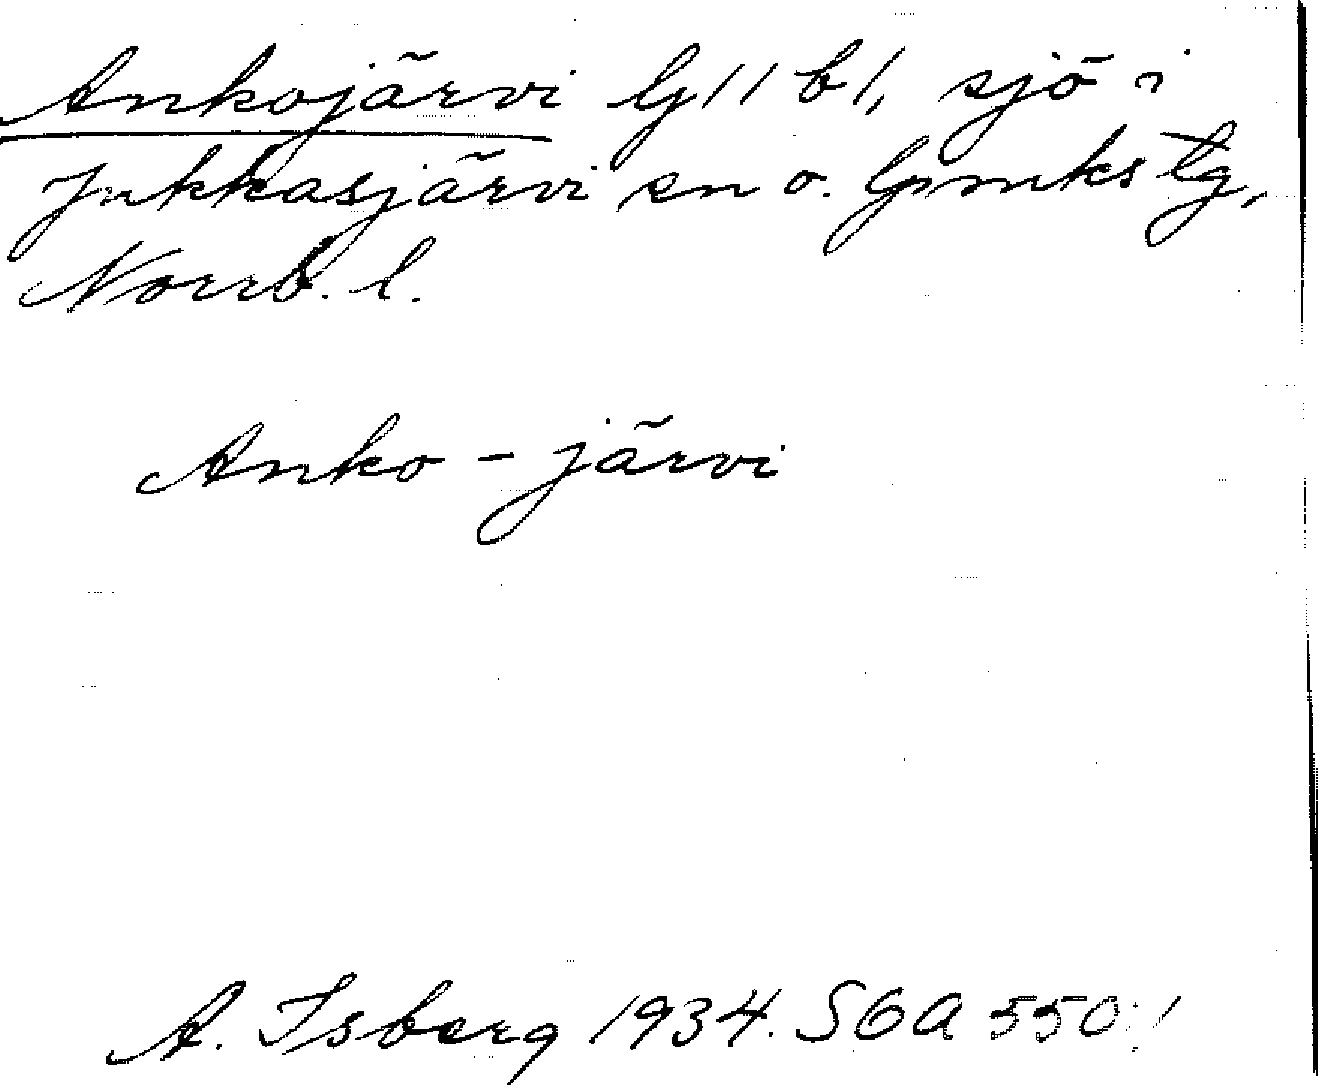 Ankojärvi G11 b1, sjö i
Jukkasjärvi sn o. lpmks tg,
Norrb. l.
Anko - järvi
A. Isberg 1934. SOA 550:1